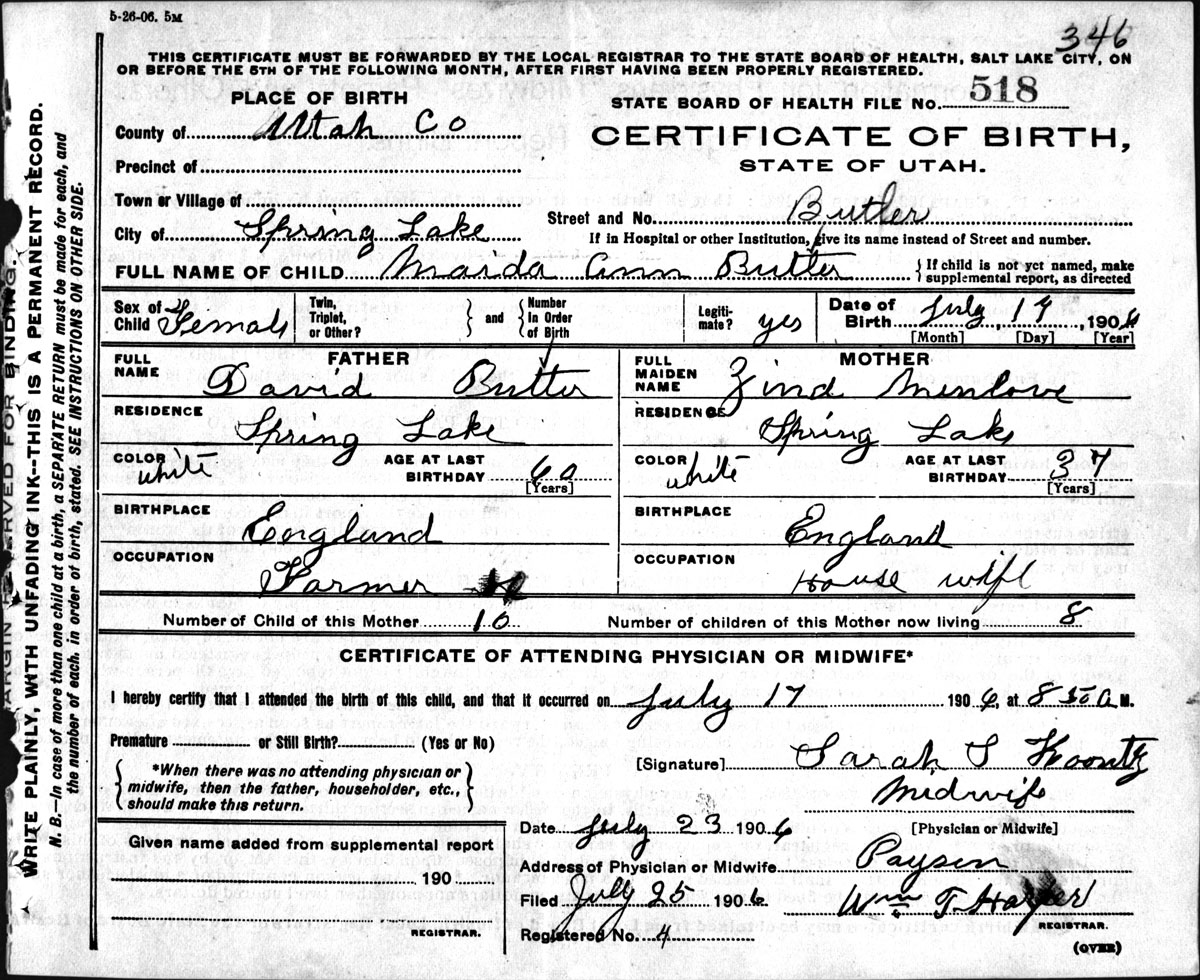 5-26-06. 5M
346
THIS CERTIFICATE MUST BE FORWARDED BY THE LOCAL REGISTRAR TO THE STATE BOARD OF HEALTH, SALT LAKE CITY, ON
OR BEFORE THE 5TH OF THE FOLLOWING MONTH, AFTER FIRST HAVING BEEN PROPERLY REGISTERED.
PLACE OF BIRTH
County of Utah Co
Precinct of
Town or Village of
City of Spring Lake
STATE BOARD OF HEALTH FILE No. 518
CERTIFICATE OF BIRTH,
STATE OF UTAH.
Butler
Street and No.
If in Hospital or other Institution, give its name instead of Street and number.
FULL NAME OF CHILD Maida Ann Butter
If child is not yet named, make
supplemental report, as directed
Sex of
Child Female
Twin,
Triplet,
or Other?
and
Number
in Order
of Birth
Legiti-
mate? yes
Date of
Birth July 17, 1906
[Month] [Day] [Year]
FATHER
FULL
NAME David Butter
RESIDENCE
Spring Lake
COLOR white
AGE AT LAST
BIRTHDAY 60
[Years]
BIRTHPLACE
England
OCCUPATION
Farmer
MOTHER
FULL
MAIDEN
NAME Zind Menlove
RESIDENCE
Spring Lake
COLOR white
AGE AT LAST
BIRTHDAY 37
[Years]
BIRTHPLACE
England
OCCUPATION
House wife
Number of Child of this Mother 10
Number of children of this Mother now living 8
CERTIFICATE OF ATTENDING PHYSICIAN OR MIDWIFE*
I hereby certify that I attended the birth of this child, and that it occurred on July 17 1906, at 8 50 A M.
Premature or Still Birth? (Yes or No)
*When there was no attending physician or
midwife, then the father, householder, etc.,
should make this return.
[Signature] Sarah S Koontz
Midwife
[Physician or Midwife]
Date July 23 1906
Address of Physician or Midwife Payson
Filed July 25 1906
Wm T
REGISTRAR.
Registered No. 4
(OVER)
Given name added from supplemental report
190
REGISTRAR.
MARGIN RESERVED FOR BINDING.
WRITE PLAINLY, WITH UNFADING INK--THIS IS A PERMANENT RECORD.
N. B.—In case of more than one child at a birth, a SEPARATE RETURN must be made for each, and
the number of each, in order of birth, stated. SEE INSTRUCTIONS ON OTHER SIDE.